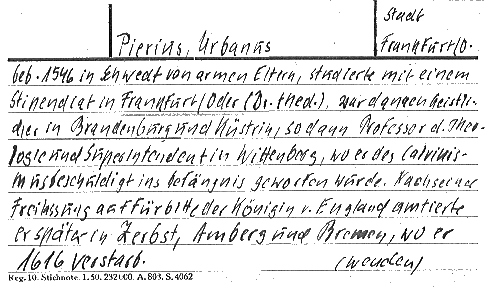 Stadt
Pierius, Urbanus Frankfurt/O.
geb. 1546 in Schwedt von armen Eltern, studierte mit einem
Stipendiat in Frankfurt/Oder (Dr. theol.), ward danach Geistli-
cher in Brandenburg und Küstrin, sodann Professor d. Theo-
logie und Superintendent in Wittenberg, wo er des Calvinis-
mus beschuldigt ins Gefängnis geworfen wurde. Nach seiner
Freilassung auf Fürbitte der Königin v. England amtierte
er später in Zerbst, Amberg und Bremen, wo er
1616 verstarb. (wenden)
Reg. 10. Stichnote. 1. 50. 232000. A. 803. S. 4062